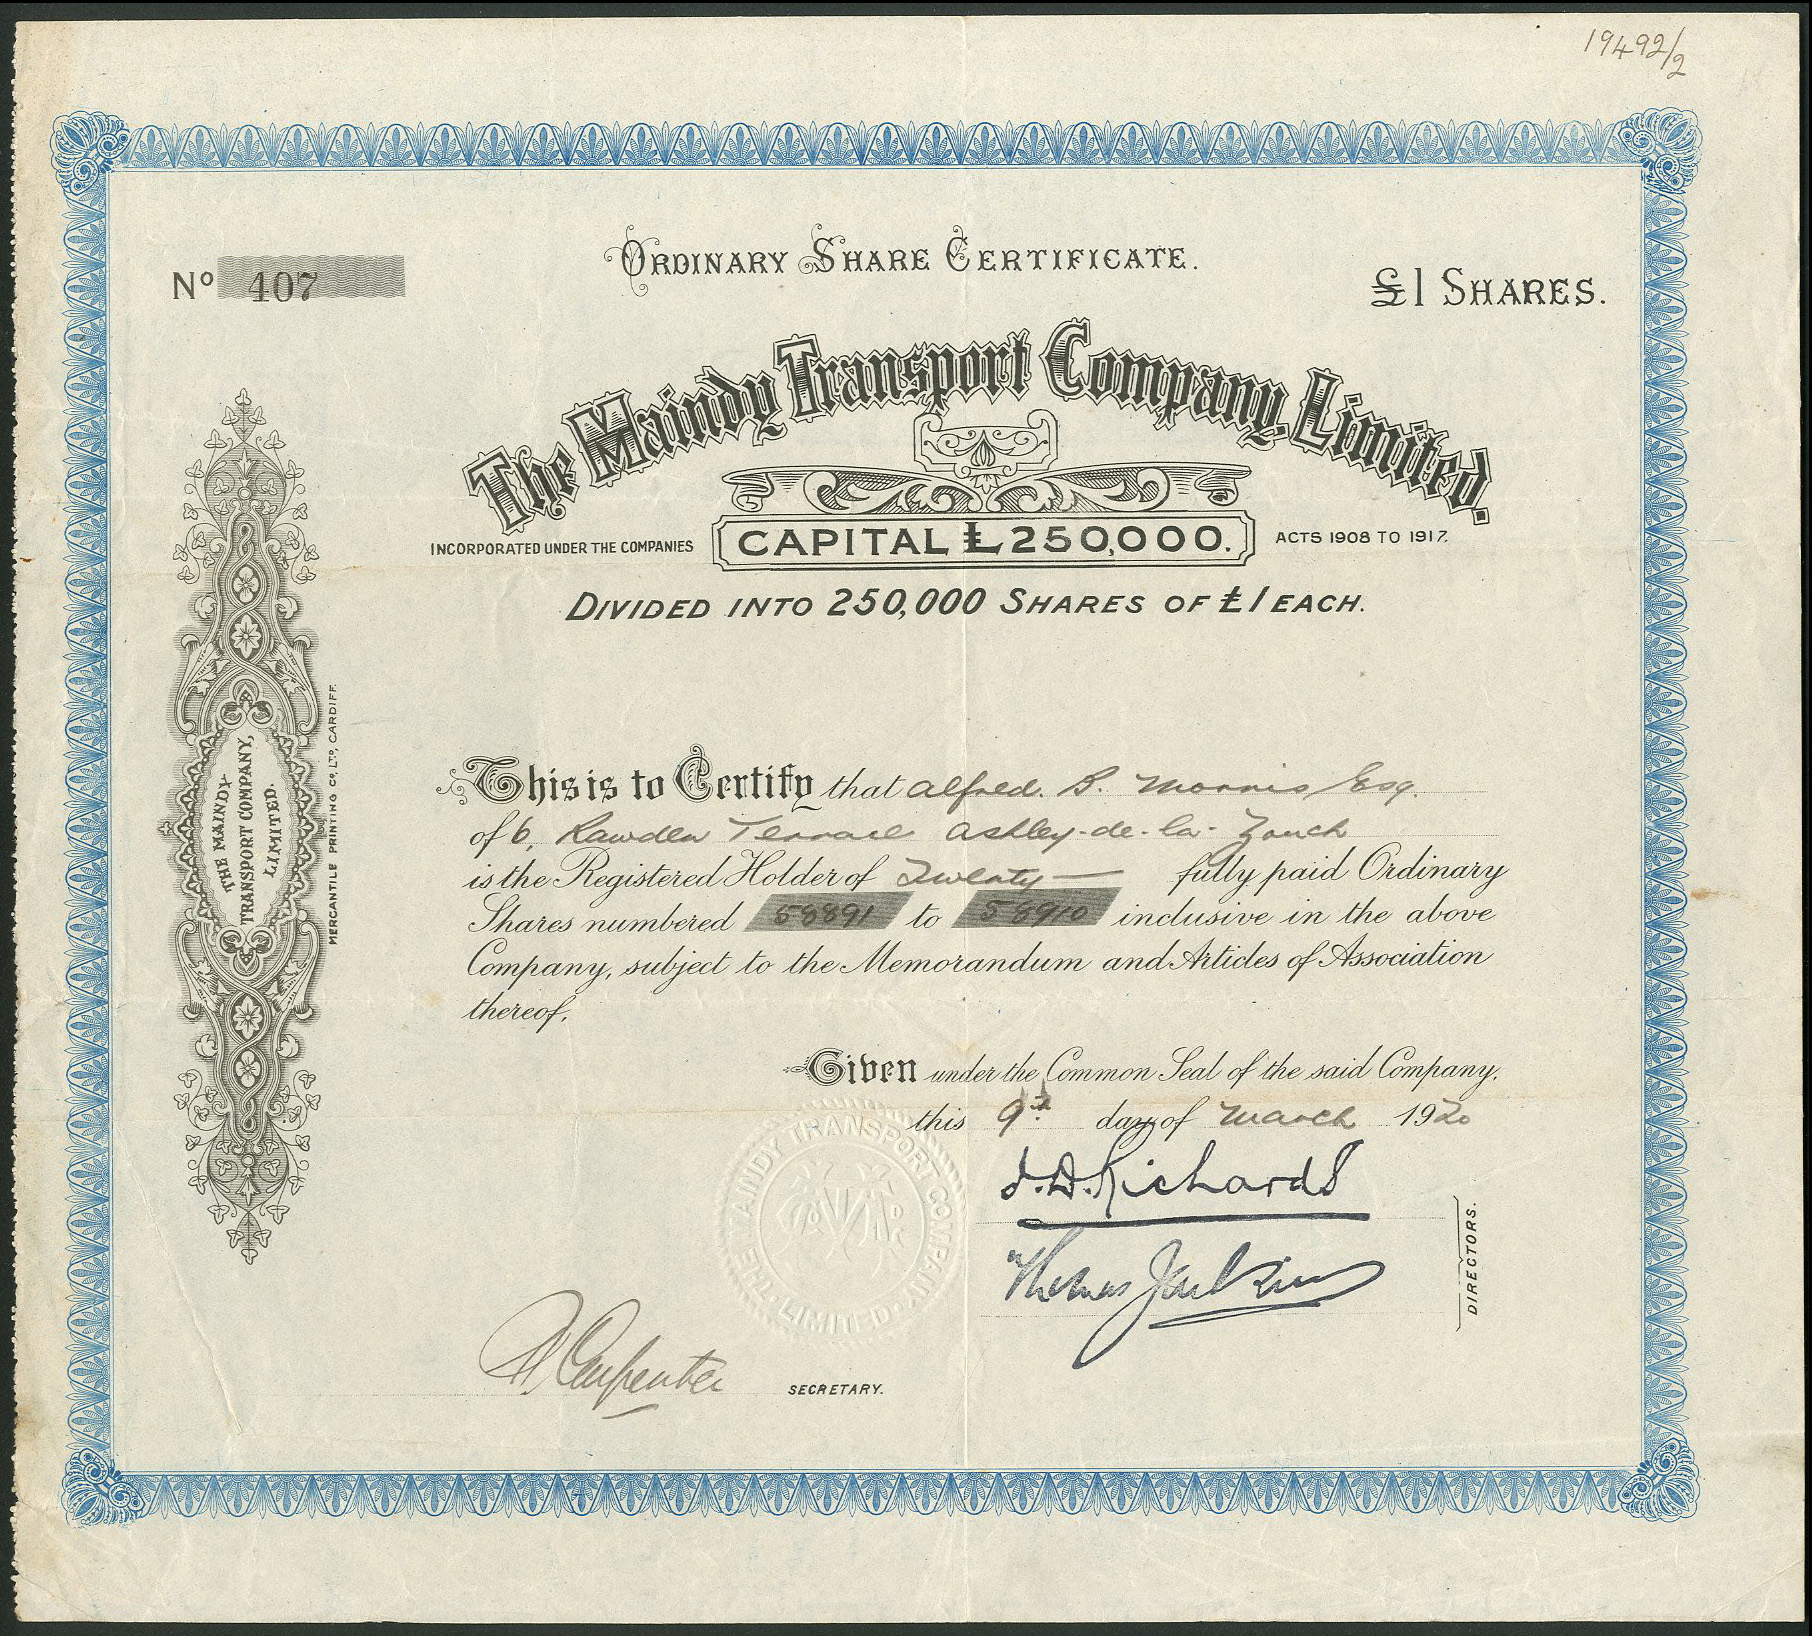 19492/2
ORDINARY SHARE CERTIFICATE.
No 407
£1 SHARES.
The Maindy Transport Company, Limited.
INCORPORATED UNDER THE COMPANIES
CAPITAL £250,000.
ACTS 1908 TO 1917.
DIVIDED INTO 250,000 SHARES OF £1 EACH.
THE MAINDY
TRANSPORT COMPANY,
LIMITED.
MERCANTILE PRINTING CO. LTD, CARDIFF.
This is to Certify that Alfred. B. Morris Esq.
of 6, Rawden Terrace Ashley-de-la-Zouch
is the Registered Holder of Twenty — fully paid Ordinary
Shares numbered 58891 to 58910 inclusive in the above
Company, subject to the Memorandum and Articles of Association
thereof.
Given under the Common Seal of the said Company.
this 9th day of March 1920
THE MAINDY TRANSPORT COMPANY LIMITED
J.D. Richards
Thomas Jenkins
DIRECTORS.
Carpenter
SECRETARY.